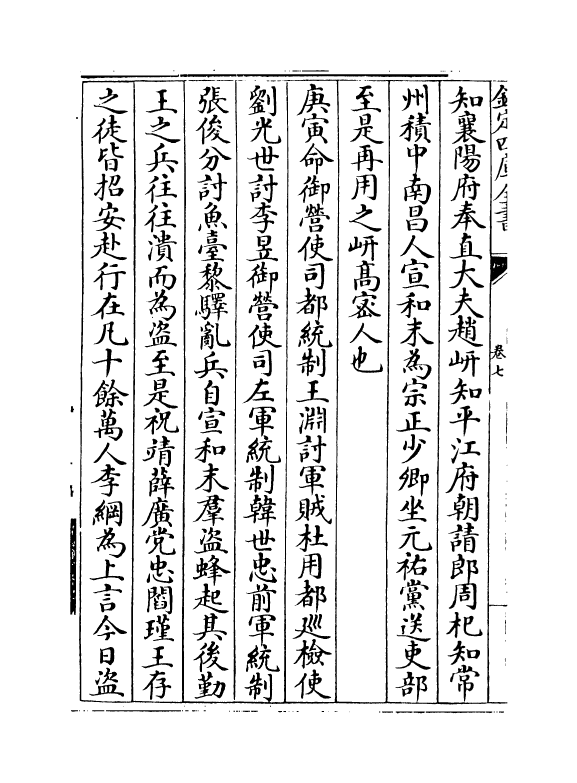 欽定四庫全書
卷七
知襄陽府奉直大夫趙岍知平江府朝請郎周杞知常
州積中南昌人宣和末為宗正少卿坐元祐黨送吏部
至是再用之岍髙宻人也
庚寅命御營使司都統制王淵討軍賊杜用都廵檢使
劉光世討李昱御營使司左軍統制韓世忠前軍統制
張俊分討魚臺黎驛亂兵自宣和末羣盜蜂起其後勤
王之兵往往潰而為盜至是祝靖薛廣党忠閻瑾王存
之徒皆招安赴行在凡十餘萬人李綱為上言今日盜